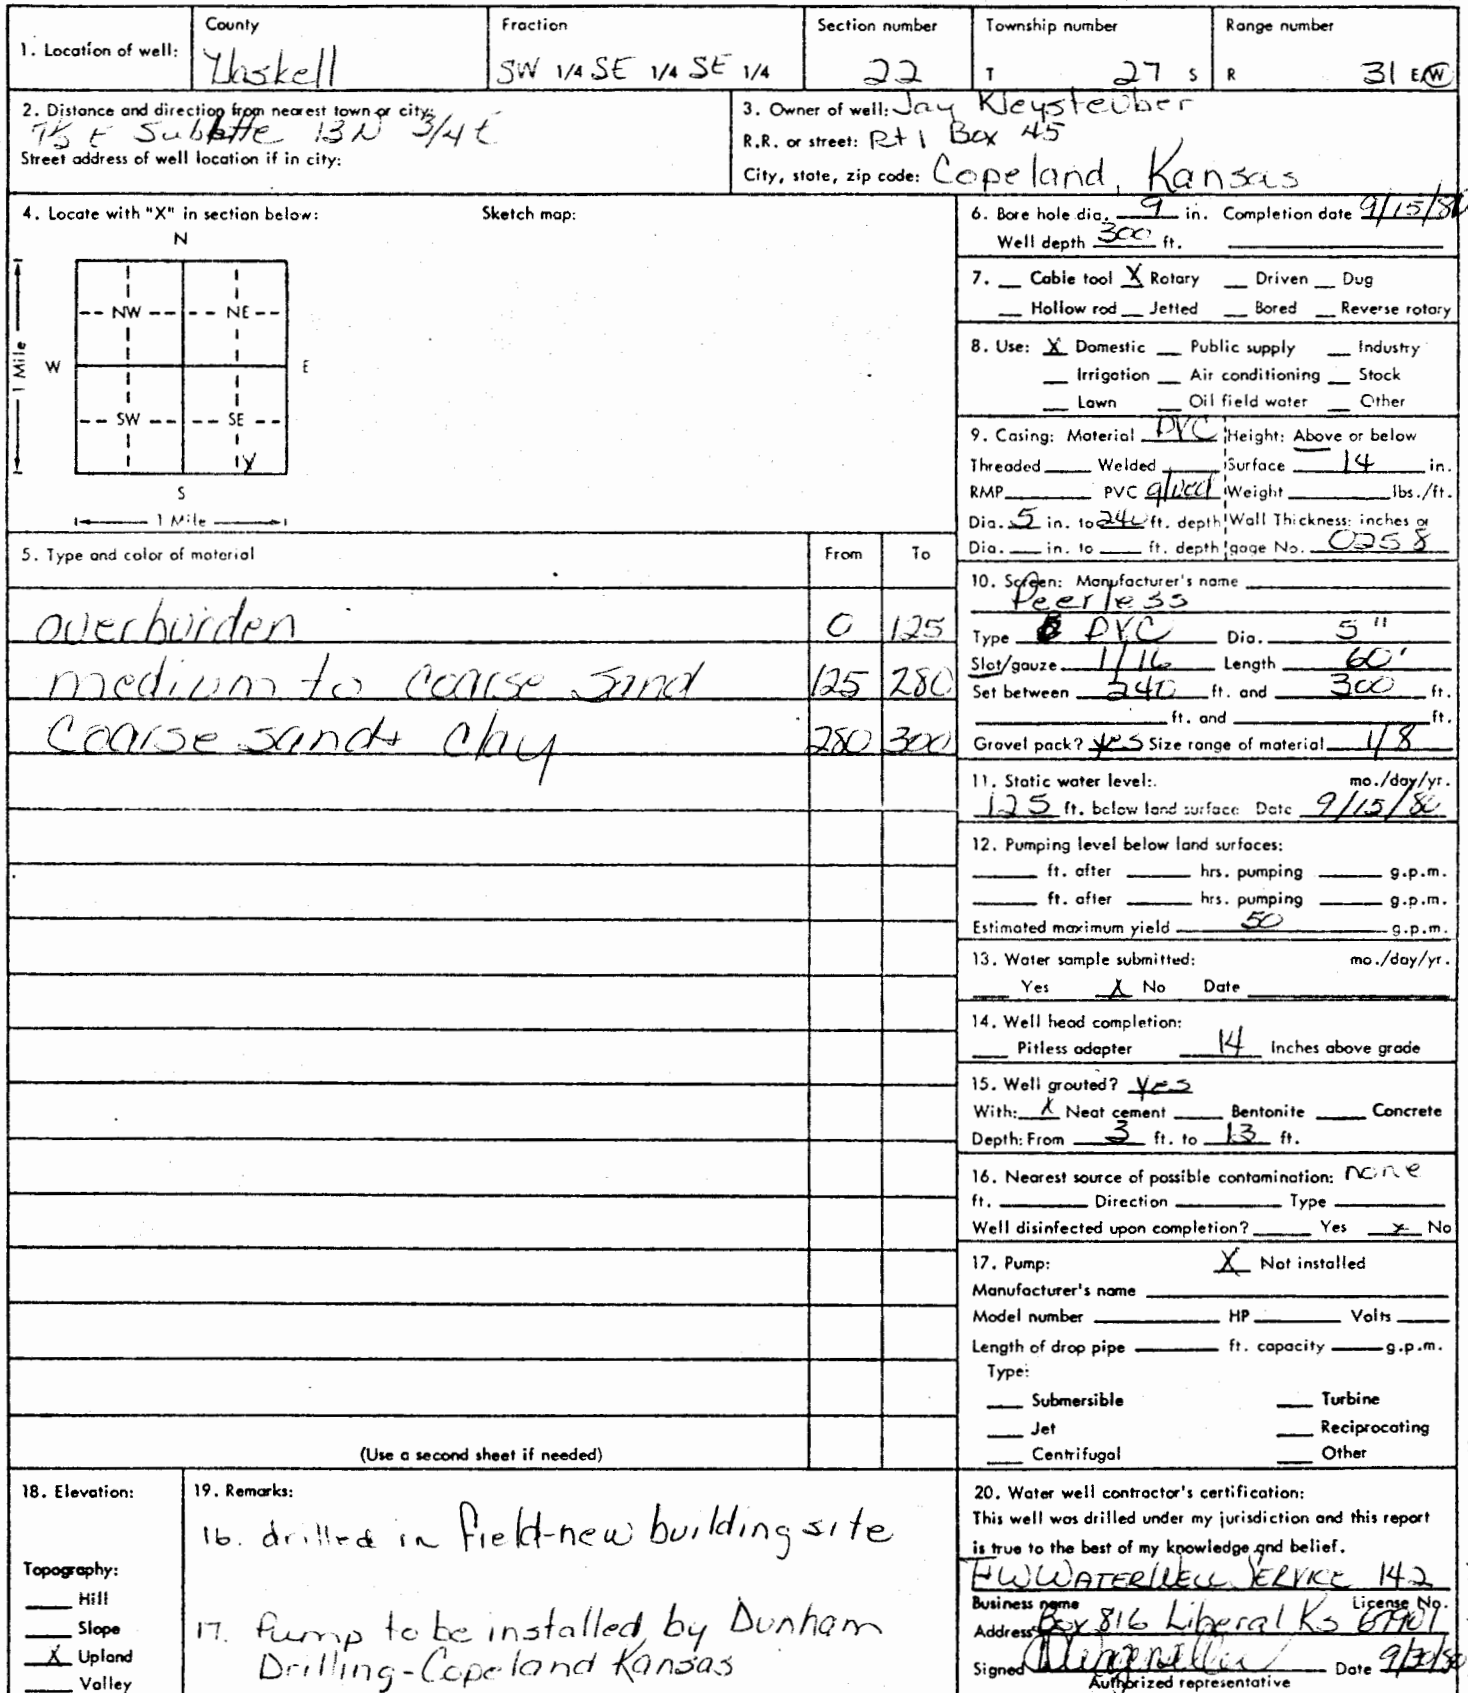 County Fraction Section number Township number Range number
1. Location of well: Haskell SW 1/4 SE 1/4 SE 1/4 22 T 27 S R 31 E/W
2. Distance and direction from nearest town or city:
E Sublette 13 N 3/4 E
Street address of well location if in city:
3. Owner of well: Jay Kleysteuber
R.R. or street: Rt 1 Box 45
City, state, zip code: Copeland, Kansas
4. Locate with "X" in section below: Sketch map:
N
NW NE
W E
1 Mile
SW SE
X
S
1 Mile
5. Type and color of material From To
overburden 0 125
medium to coarse sand 125 280
coarse sand + clay 280 300
(Use a second sheet if needed)
6. Bore hole dia. 9 in. Completion date 9/15/80
Well depth 300 ft.
7. __ Cable tool X Rotary __ Driven __ Dug
__ Hollow rod __ Jetted __ Bored __ Reverse rotary
8. Use: X Domestic __ Public supply __ Industry
__ Irrigation __ Air conditioning __ Stock
__ Lawn __ Oil field water __ Other
9. Casing: Material PVC Height: Above or below
Threaded ___ Welded ___ Surface 14 in.
RMP ___ PVC glued Weight ___ lbs./ft.
Dia. 5 in. to 240 ft. depth Wall Thickness: inches or
Dia. __ in. to __ ft. depth gage No. 0258
10. Screen: Manufacturer's name
Peerless
Type PVC Dia. 5"
Slot/gauze 1/16 Length 60'
Set between 240 ft. and 300 ft.
___ ft. and ___ ft.
Gravel pack? yes Size range of material 1/8
11. Static water level: mo./day/yr.
125 ft. below land surface Date 9/15/80
12. Pumping level below land surfaces:
___ ft. after ___ hrs. pumping ___ g.p.m.
___ ft. after ___ hrs. pumping ___ g.p.m.
Estimated maximum yield 50 g.p.m.
13. Water sample submitted: mo./day/yr.
__ Yes X No Date
14. Well head completion:
__ Pitless adapter 14 Inches above grade
15. Well grouted? yes
With: X Neat cement ___ Bentonite ___ Concrete
Depth: From 3 ft. to 13 ft.
16. Nearest source of possible contamination: none
ft. ___ Direction ___ Type ___
Well disinfected upon completion? ___ Yes x No
17. Pump: X Not installed
Manufacturer's name
Model number ___ HP ___ Volts ___
Length of drop pipe ___ ft. capacity ___ g.p.m.
Type:
__ Submersible __ Turbine
__ Jet __ Reciprocating
__ Centrifugal __ Other
18. Elevation:
Topography:
__ Hill
__ Slope
X Upland
__ Valley
19. Remarks:
16. drilled in field-new building site
17. Pump to be installed by Dunham
Drilling-Copeland Kansas
20. Water well contractor's certification:
This well was drilled under my jurisdiction and this report
is true to the best of my knowledge and belief.
WATER WELL SERVICE 142
Business name License No.
Address Box 816 Liberal Ks 67901
Signed Date 9/30/80
Authorized representative